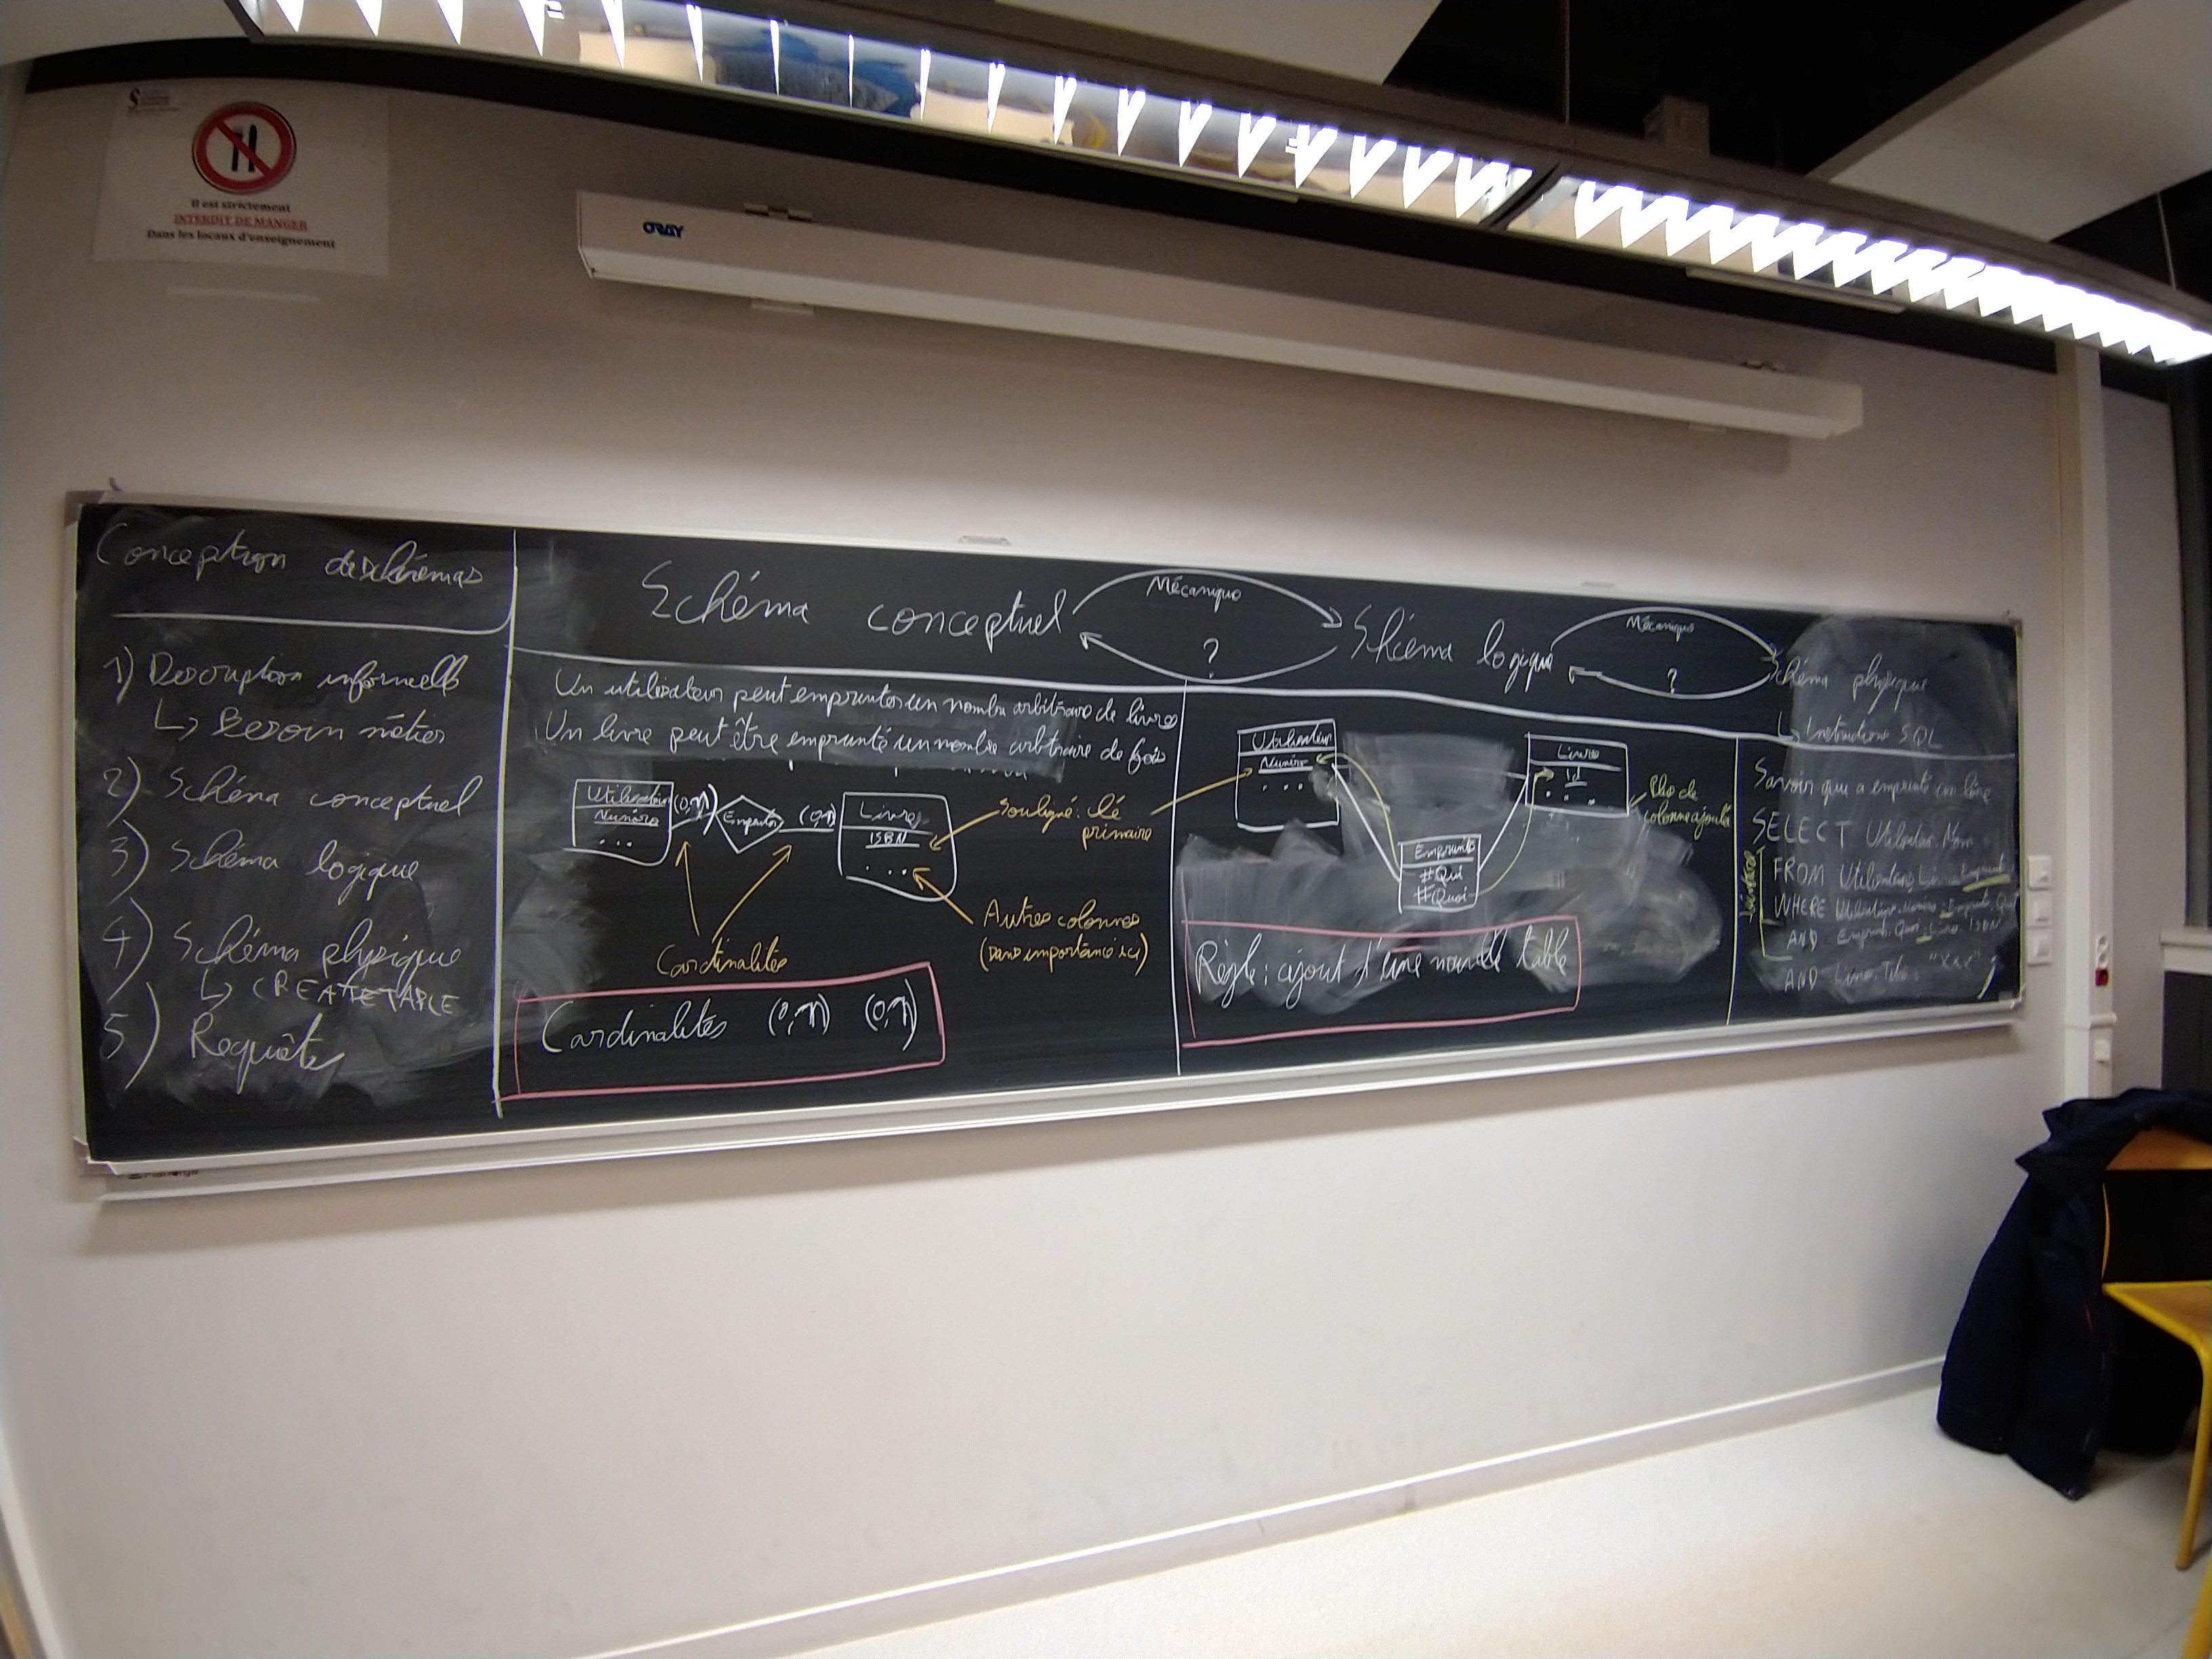 Il est strictement
INTERDIT DE MANGER
Dans les locaux d'enseignement
ORAY
Conception de schémas
1) Description informelle
↳ Besoin métier
2) Schéma conceptuel
3) Schéma logique
4) Schéma physique
↳ CREATE TABLE
5) Requête
Schéma conceptuel
Mécanique
?
Schéma logique
Mécanique
?
Schéma physique
↳ Instructions SQL
Un utilisateur peut emprunter un nombre arbitraire de livres
Un livre peut être emprunté un nombre arbitraire de fois
Utilisateur
Numéro
...
(0,n)
Emprunter
(0,n)
Livre
ISBN
...
Souligné : clé
primaire
Autres colonnes
(sans importance ici)
Cardinalités
Cardinalités (0,n) (0,n)
Utilisateur
Numéro
...
Livre
Id
...
Emprunts
#Qui
#Quoi
Plus de
colonne ajoutée
Règle : ajout d'une nouvelle table
Savoir qui a emprunté un livre
SELECT Utilisateur.Nom
FROM Utilisateur, Livre, Emprunt
WHERE Utilisateur.Numéro = Emprunt.Qui
AND Emprunt.Quoi = Livre.ISBN
AND Livre.Titre = "xxx" ;